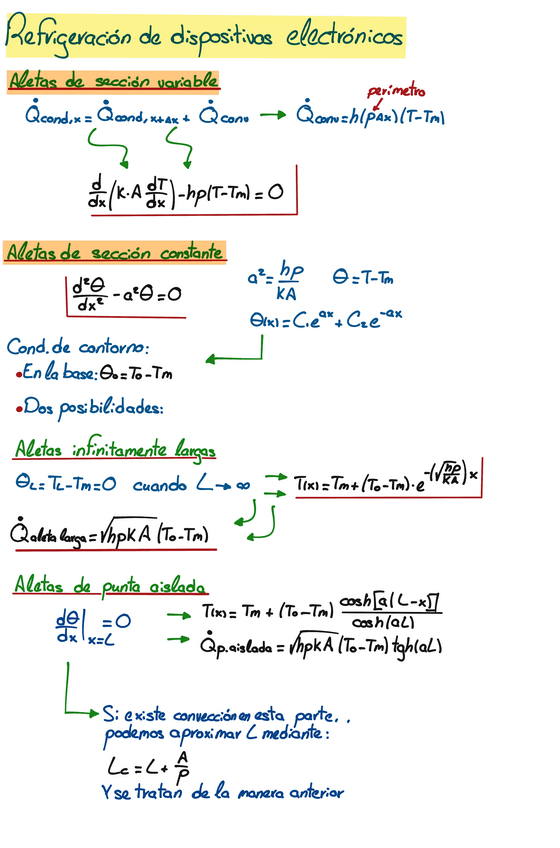 Refrigeración de dispositivos electrónicos
Aletas de sección variable
perímetro
Q̇cond,x = Q̇cond,x+Δx + Q̇conv → Q̇conv = h(pΔx)(T-Tm)
d/dx (K·A dT/dx) - hp(T-Tm) = 0
Aletas de sección constante
d²θ/dx² - a²θ = 0
a² = hp/KA θ = T-Tm
θ(x) = C₁e^ax + C₂e^-ax
Cond. de contorno:
•En la base: θ₀ = T₀-Tm
•Dos posibilidades:
Aletas infinitamente largas
θL = TL-Tm = 0 cuando L → ∞ → T(x) = Tm + (T₀-Tm)·e^-(√hp/KA)x
Q̇aleta larga = √hpKA (T₀-Tm)
Aletas de punta aislada
dθ/dx|x=L = 0 → T(x) = Tm + (T₀-Tm) cosh[a(L-x)]/cosh(aL)
→ Q̇p.aislada = √hpkA (T₀-Tm) tgh(aL)
Si existe convección en esta parte, .
podemos aproximar L mediante:
Lc = L + A/P
Y se tratan de la manera anterior